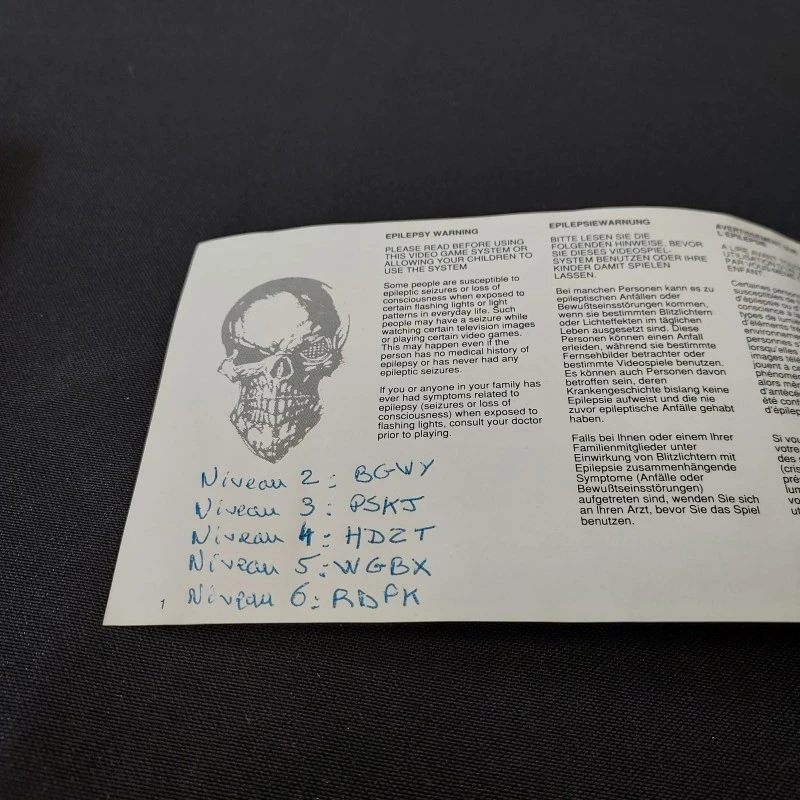 EPILEPSY WARNING
PLEASE READ BEFORE USING
THIS VIDEO GAME SYSTEM OR
ALLOWING YOUR CHILDREN TO
USE THE SYSTEM
Some people are susceptible to
epileptic seizures or loss of
consciousness when exposed to
certain flashing lights or light
patterns in everyday life. Such
people may have a seizure while
watching certain television images
or playing certain video games.
This may happen even if the
person has no medical history of
epilepsy or has never had any
epileptic seizures.
If you or anyone in your family has
ever had symptoms related to
epilepsy (seizures or loss of
consciousness) when exposed to
flashing lights, consult your doctor
prior to playing.
EPILEPSIEWARNUNG
BITTE LESEN SIE DIE
FOLGENDEN HINWEISE, BEVOR
SIE DIESES VIDEOSPIEL-
SYSTEM BENUTZEN ODER IHRE
KINDER DAMIT SPIELEN
LASSEN.
Bei manchen Personen kann es zu
epileptischen Anfällen oder
Bewußtseinsstörungen kommen,
wenn sie bestimmten Blitzlichtern
oder Lichteffekten im täglichen
Leben ausgesetzt sind. Diese
Personen können einen Anfall
erleiden, während sie bestimmte
Fernsehbilder betrachter oder
bestimmte Videospiele benutzen.
Es können auch Personen davon
betroffen sein, deren
Krankengeschichte bislang keine
Epilepsie aufweist und die nie
zuvor epileptische Anfälle gehabt
haben.
Falls bei Ihnen oder einem Ihrer
Familienmitglieder unter
Einwirkung von Blitzlichtern mit
Epilepsie zusammenhängende
Symptome (Anfälle oder
Bewußtseinsstörungen)
aufgetreten sind, wenden Sie sich
an Ihren Arzt, bevor Sie das Spiel
benutzen.
L'EPILEPSIE
A LIRE AVANT
UTILISATION
ENFANT.
Certaines
d'épilepsie
conscience
types de
environnement
personnes
lorsqu'elles
images
jouent à
alors
Si
votre
des
Niveau 2 : BGWY
Niveau 3 : PSKJ
Niveau 4 : HDZT
Niveau 5 : WGBX
Niveau 6 : RDPK
1